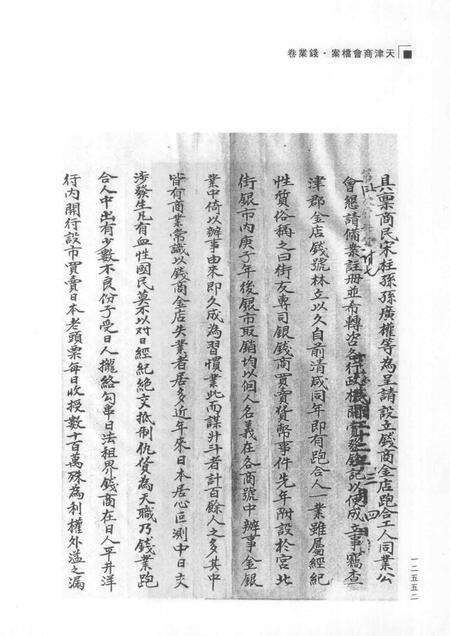 天津商會檔案·錢業卷
具禀商民宋桂孫孫廣權等為呈請設立錢商金店跑合工人同業公
會懇請備案註冊並希轉咨各行政機關實發登記以便成立事竊查
津郡金店錢號林立以久自前清咸同年即有跑合人一業雖屬經紀
性質俗稱之曰街友專司銀錢商買賣貨幣事件先年附設於宮北
街銀市內庚子年後銀市取銷均以個人名義在各商號中辦事金銀
業中倚以辦事由來即久成為習慣業此而謀升斗者計百餘人之多其中
皆有商業常識以錢商金店失業者居多近年來日本居心叵測中日交
涉發生凡有血性國民莫不以對日經紀絕交抵制仇貨為天職乃錢業跑
合人中出有少數不良份子受日人攏絡勾串日法租界錢商在日人平井洋
行內開行設市買賣日本老頭票每日收授數十百萬殊為利權外溢之漏
一二五五二